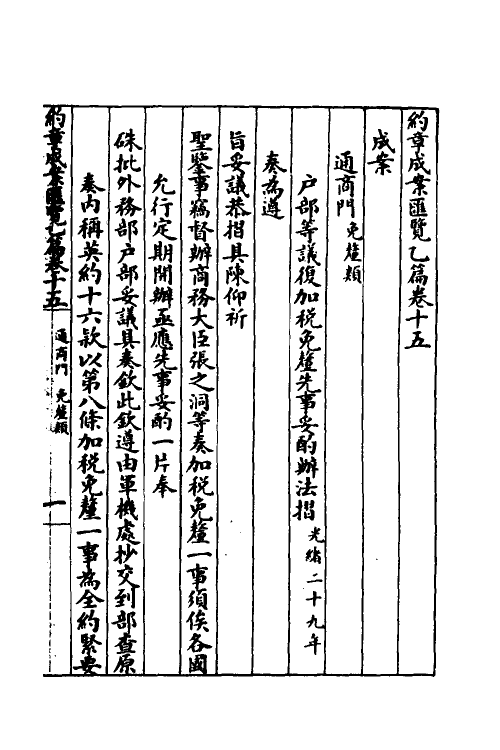 約章成案匯覽乙篇卷十五
成案
通商門 免釐類
戶部等議復加稅免釐先事妥酌辦法摺 光緒二十九年
奏為遵
旨妥議恭摺具陳仰祈
聖鑒事竊督辦商務大臣張之洞等奏加稅免釐一事須俟各國
允行定期開辦亟應先事妥酌一片奉
硃批外務部戶部妥議具奏欽此欽遵由軍機處抄交到部查原
奏內稱英約十六款以第八條加稅免釐一事為全約緊要
約章成案匯覽乙篇卷十五 通商門 免釐類 一